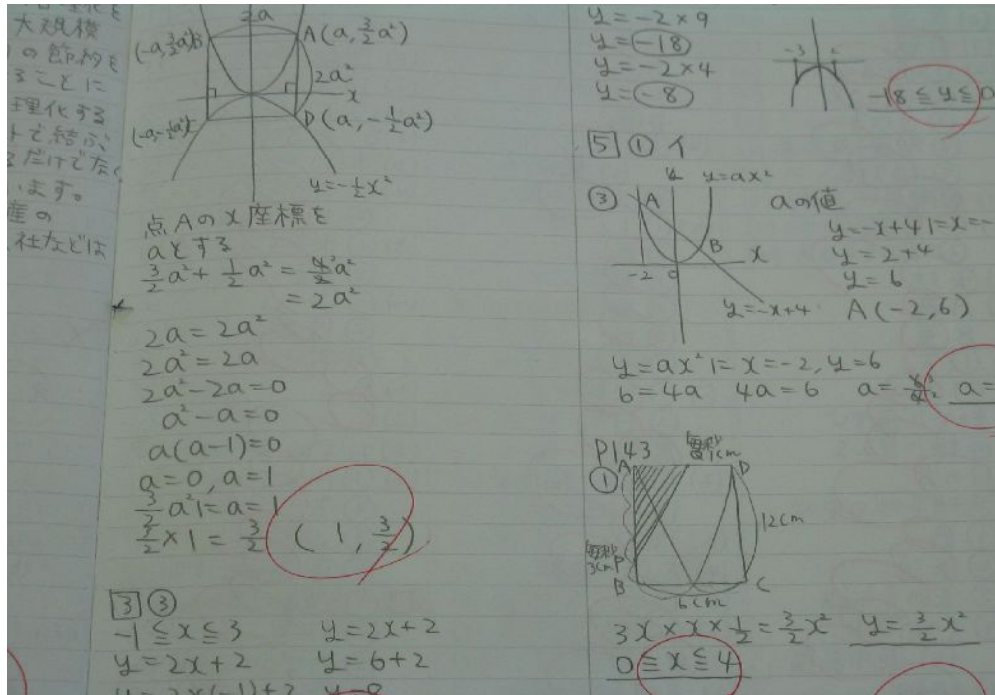 大規模
の節約を
ることに
理化する
トで結ぶ
るだけでなく
います。
産の
社などは
2a
(-a, 3/2a²)B
A(a, 3/2a²)
2a²
x
(-a, -1/2a²)
D(a, -1/2a²)
y=-1/2x²
点Aのx座標を
aとする
3/2a²+1/2a²=4/2a²
=2a²
2a=2a²
2a²=2a
2a²-2a=0
a²-a=0
a(a-1)=0
a=0, a=1
3/2a²に a=1
3/2×1=3/2 (1, 3/2)
3 ③
-1≦x≦3 y=2x+2
y=2x+2 y=6+2
y=2x(-1)+2 y=8
y=-2×9
y=-18
y=-2×4
y=-8
-3 2
-18≦y≦0
5 ① イ
③
y y=ax²
A
B
x
-2 0
y=-x+4
aの値
y=-x+4に x=-
y=2+4
y=6
A(-2,6)
y=ax²に x=-2, y=6
6=4a 4a=6 a=6/4 a=
P143
①
毎秒1cm
A D
12cm
毎秒3cm P
B C
6cm
3x×x×1/2=3/2x² y=3/2x²
0≦x≦4